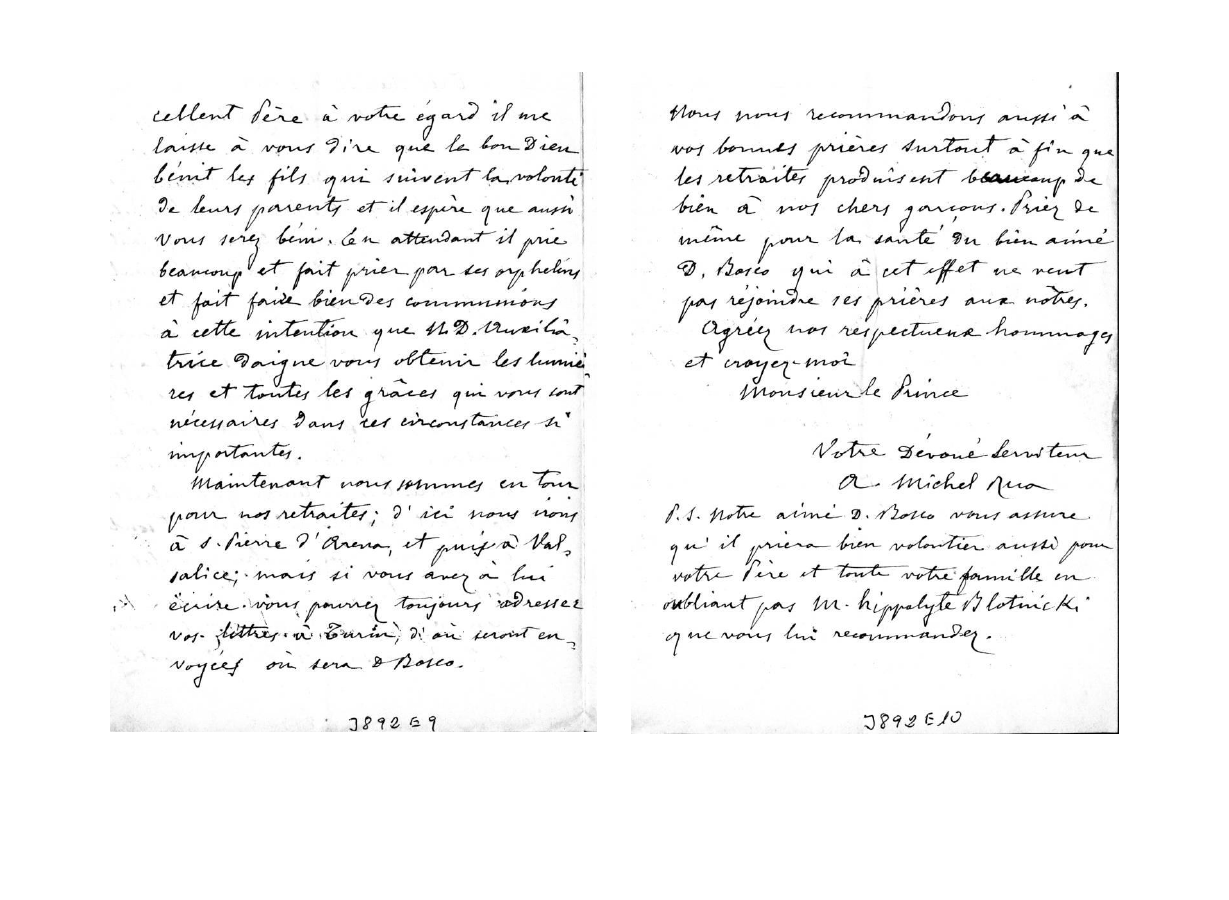 cellent Père à votre égard il me
laisse à vous dire que le bon Dieu
bénit les fils qui suivent la volonté
de leurs parents et il espère que aussi
vous serez béni. En attendant il prie
beaucoup et fait prier par ses orphelins
et fait faire bien des communions
à cette intention que N.D. Auxilia-
trice daigne vous obtenir les lumiè
res et toutes les grâces qui vous sont
nécessaires dans ces circonstances si
importantes.
Maintenant nous sommes en tour
pour nos retraites; d'ici nous irons
à S. Pierre d'Arena, et puis à Val-
salice; mais si vous avez à lui
écrire vous pourrez toujours adresser
vos lettres à Turin, d'où seront en-
voyées où sera D Bosco.
J892E9
Nous nous recommandons aussi à
vos bonnes prières surtout à fin que
les retraites produisent beaucoup de
bien à nos chers garçons. Priez de
même pour la santé du bien aimé
D. Bosco qui à cet effet ne veut
pas réjoindre ses prières aux nôtres.
Agréez nos respectueux hommages
et croyez-moi
Monsieur le Prince
Votre Dévoué Serviteur
Michel Rua
P.S. Notre aimé D. Bosco vous assure
qu'il priera bien volontier aussi pour
votre Père et toute votre famille en
oubliant pas M. hippolyte Blotnicki
que vous lui recommandez.
J892E10